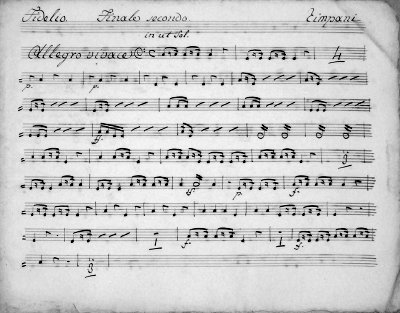 Fidelio. Finale secondo. Timpani
in ut Sol.
Allegro vivace C 4
p. p.
p.
ff.
3
8 p f.
1 f. 1 f.
3